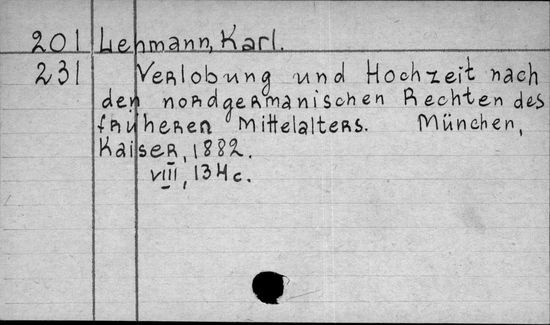 201 Lehmann, Karl.
231 Verlobung und Hochzeit nach
den nordgermanischen Rechten des
früheren Mittelalters. München,
Kaiser, 1882.
VIII, 134 c.